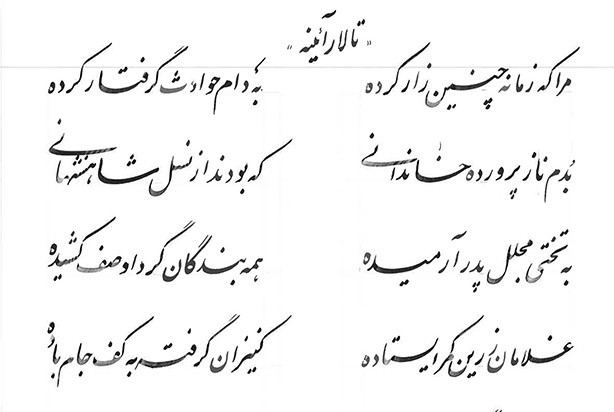 « تالار آئینه »
مرا که زمانه چنین زار کرده به دام حوادث گرفتار کرده
بُدم ناز پرورده خاندانی که بودند از نسل شاهنشهانی
به تختی مجلل پدر آرمیده همه بندگان گرد او صف کشیده
غلامان زرین کمر ایستاده کنیزان گرفته به کف جام باده